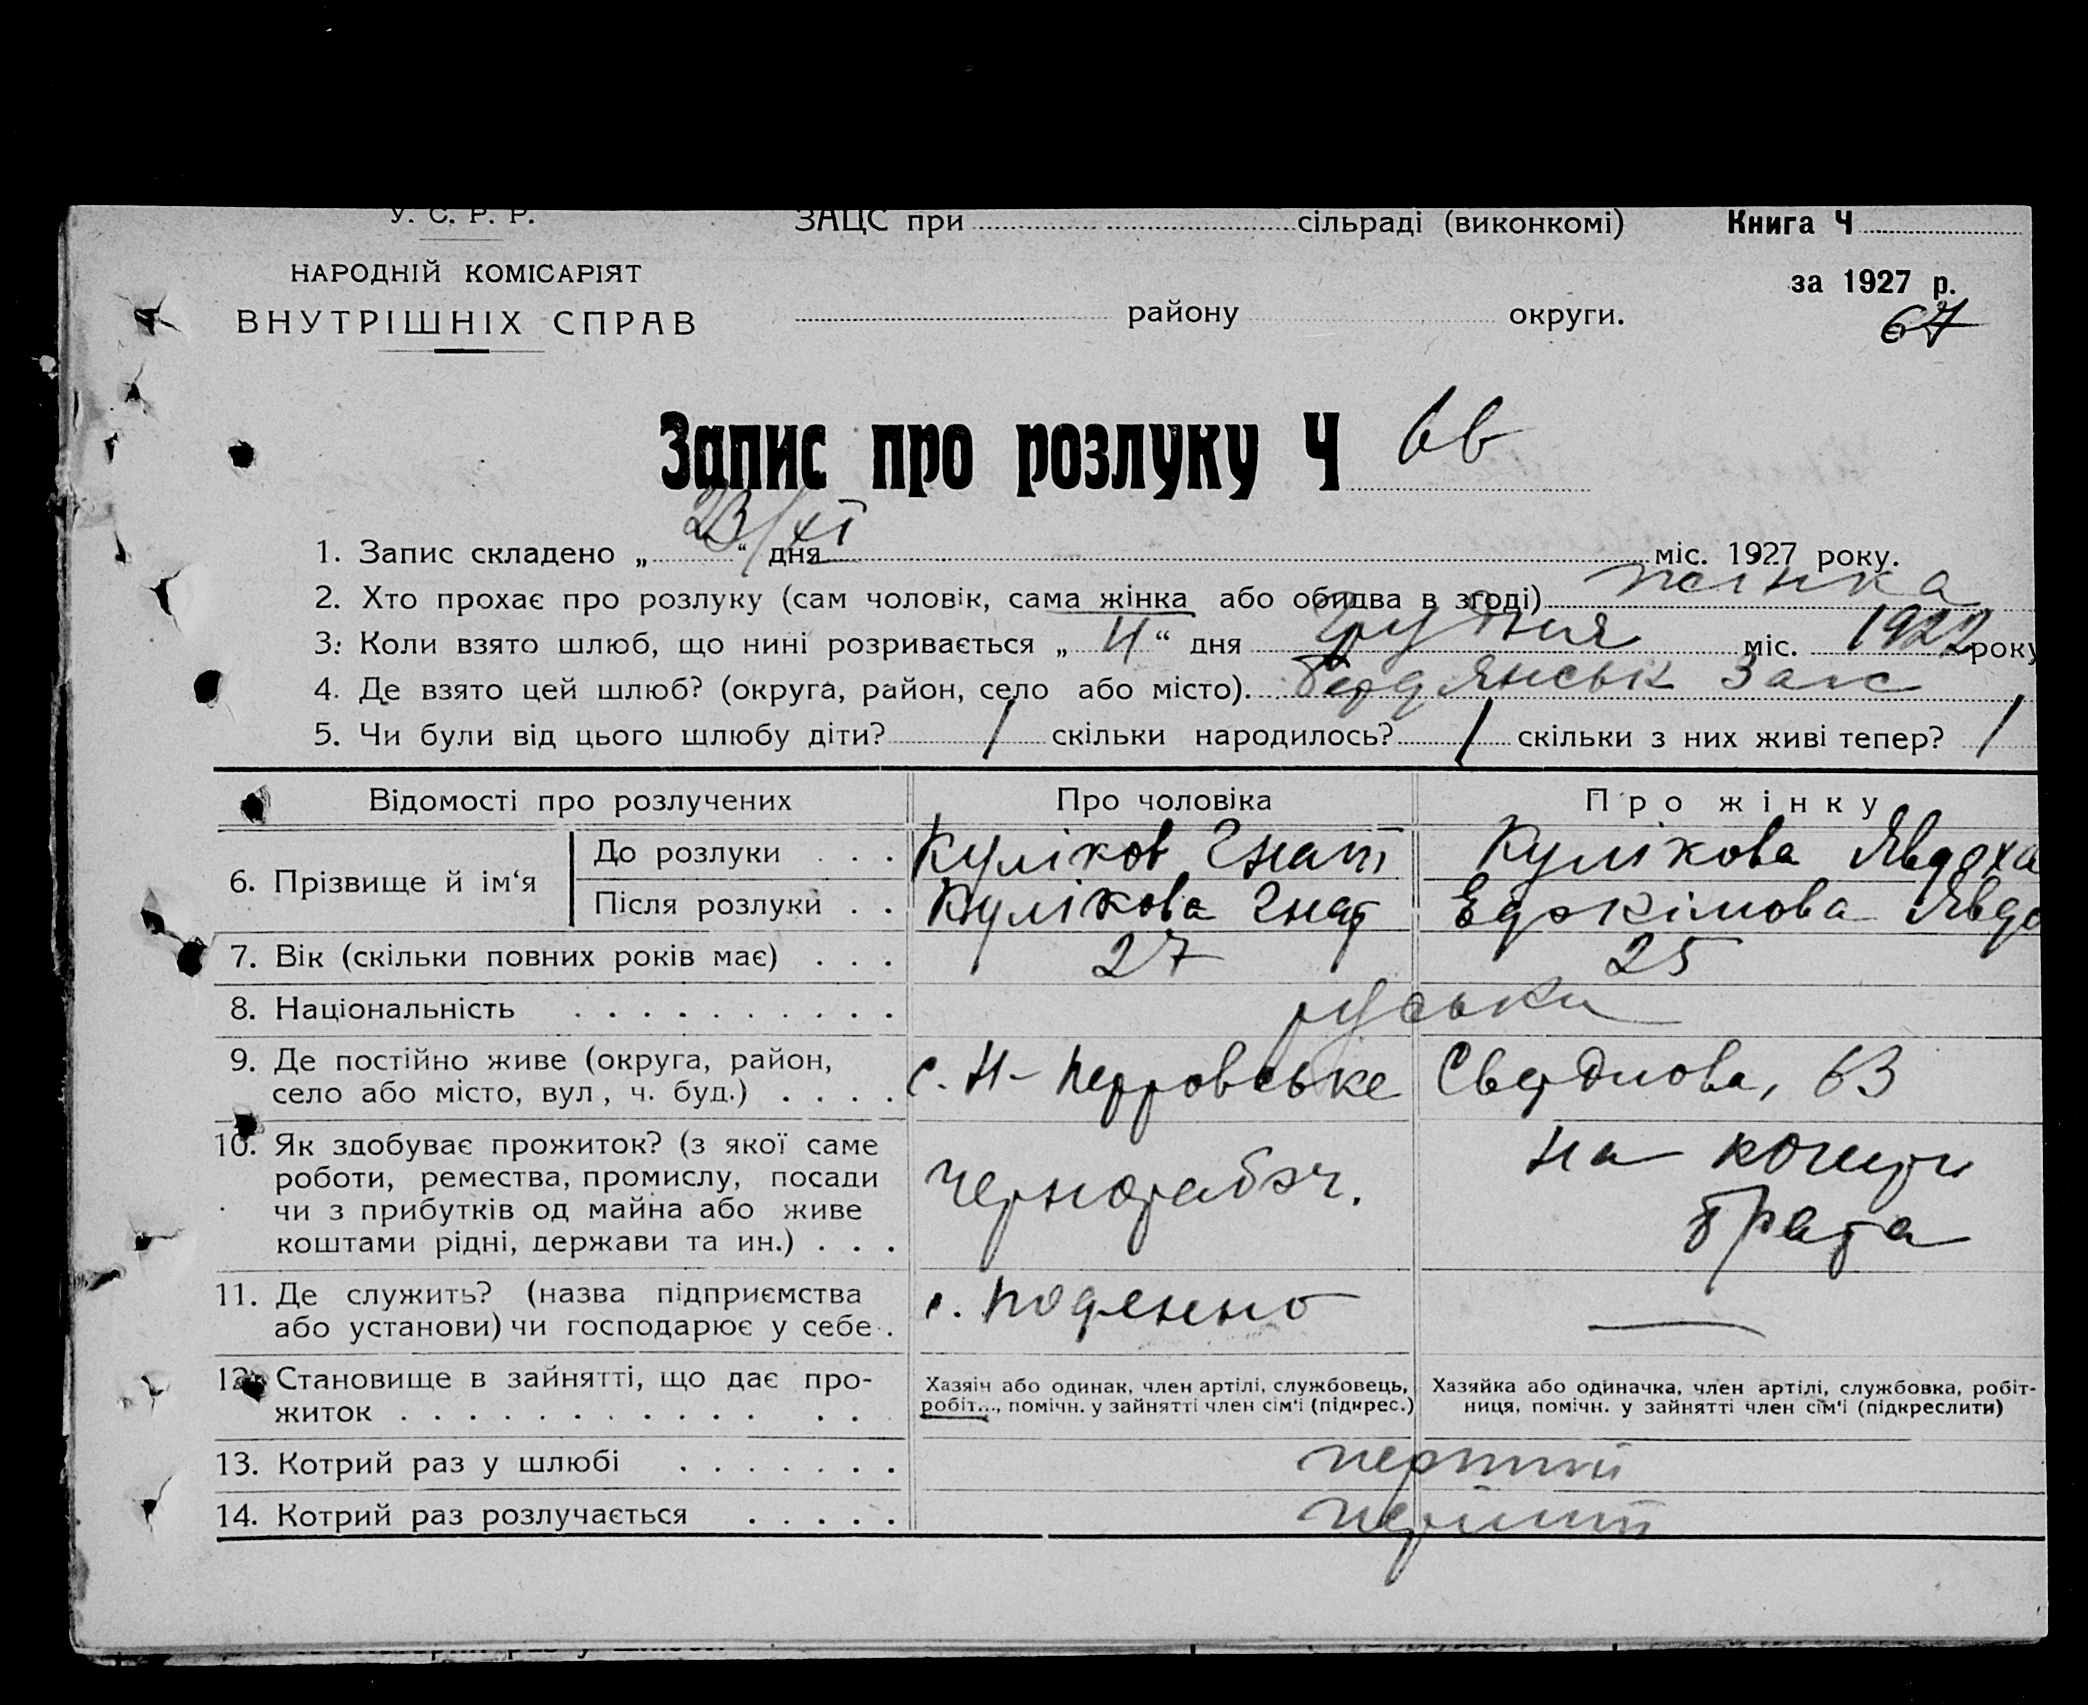 У. С. Р. Р.
ЗАЦС при сільраді (виконкомі)
Книга Ч
НАРОДНІЙ КОМІСАРІЯТ
ВНУТРІШНІХ СПРАВ
за 1927 р.
району округи.
67
Запис про розлуку Ч 66
1. Запис складено „ 23/XI “ дня міс. 1927 року.
2. Хто прохає про розлуку (сам чоловік, сама жінка або обидва в згоді) жінка
3. Коли взято шлюб, що нині розривається „ 4 “ дня Грудня міс. 1922 року
4. Де взято цей шлюб? (округа, район, село або місто). Бердянськ Загс
5. Чи були від цього шлюбу діти? 1 скільки народилось? 1 скільки з них живі тепер? 1
Відомості про розлучених Про чоловіка Про жінку
6. Прізвище й ім‘я
До розлуки . . . Куліков Гнат Кулікова Явдоха
Після розлуки . . Кулікова Гнат Явдо
7. Вік (скільки повних років має) . . . 27 25
8. Національність . . . . . . . . . . руськи
9. Де постійно живе (округа, район,
село або місто, вул., ч. буд.) . . . . с. Н-Петровське Свердлова, 63
10. Як здобуває прожиток? (з якої саме
роботи, ремества, промислу, посади
чи з прибутків од майна або живе
коштами рідні, держави та ин.) . . . Чернорабоч. на кошти
брата
11. Де служить? (назва підприємства
або установи) чи господарює у себе . поденно —
12. Становище в зайнятті, що дає про-
житок . . . . . . . . . . . . .
Хазяін або одинак, член артілі, службовець,
робіт..., помічн. у зайнятті член сім'і (підкрес.)
Хазяйка або одиначка, член артілі, службовка, робіт-
ниця, помічн. у зайнятті член сім'і (підкреслити)
13. Котрий раз у шлюбі . . . . . . . перший
14. Котрий раз розлучається . . . . . перший